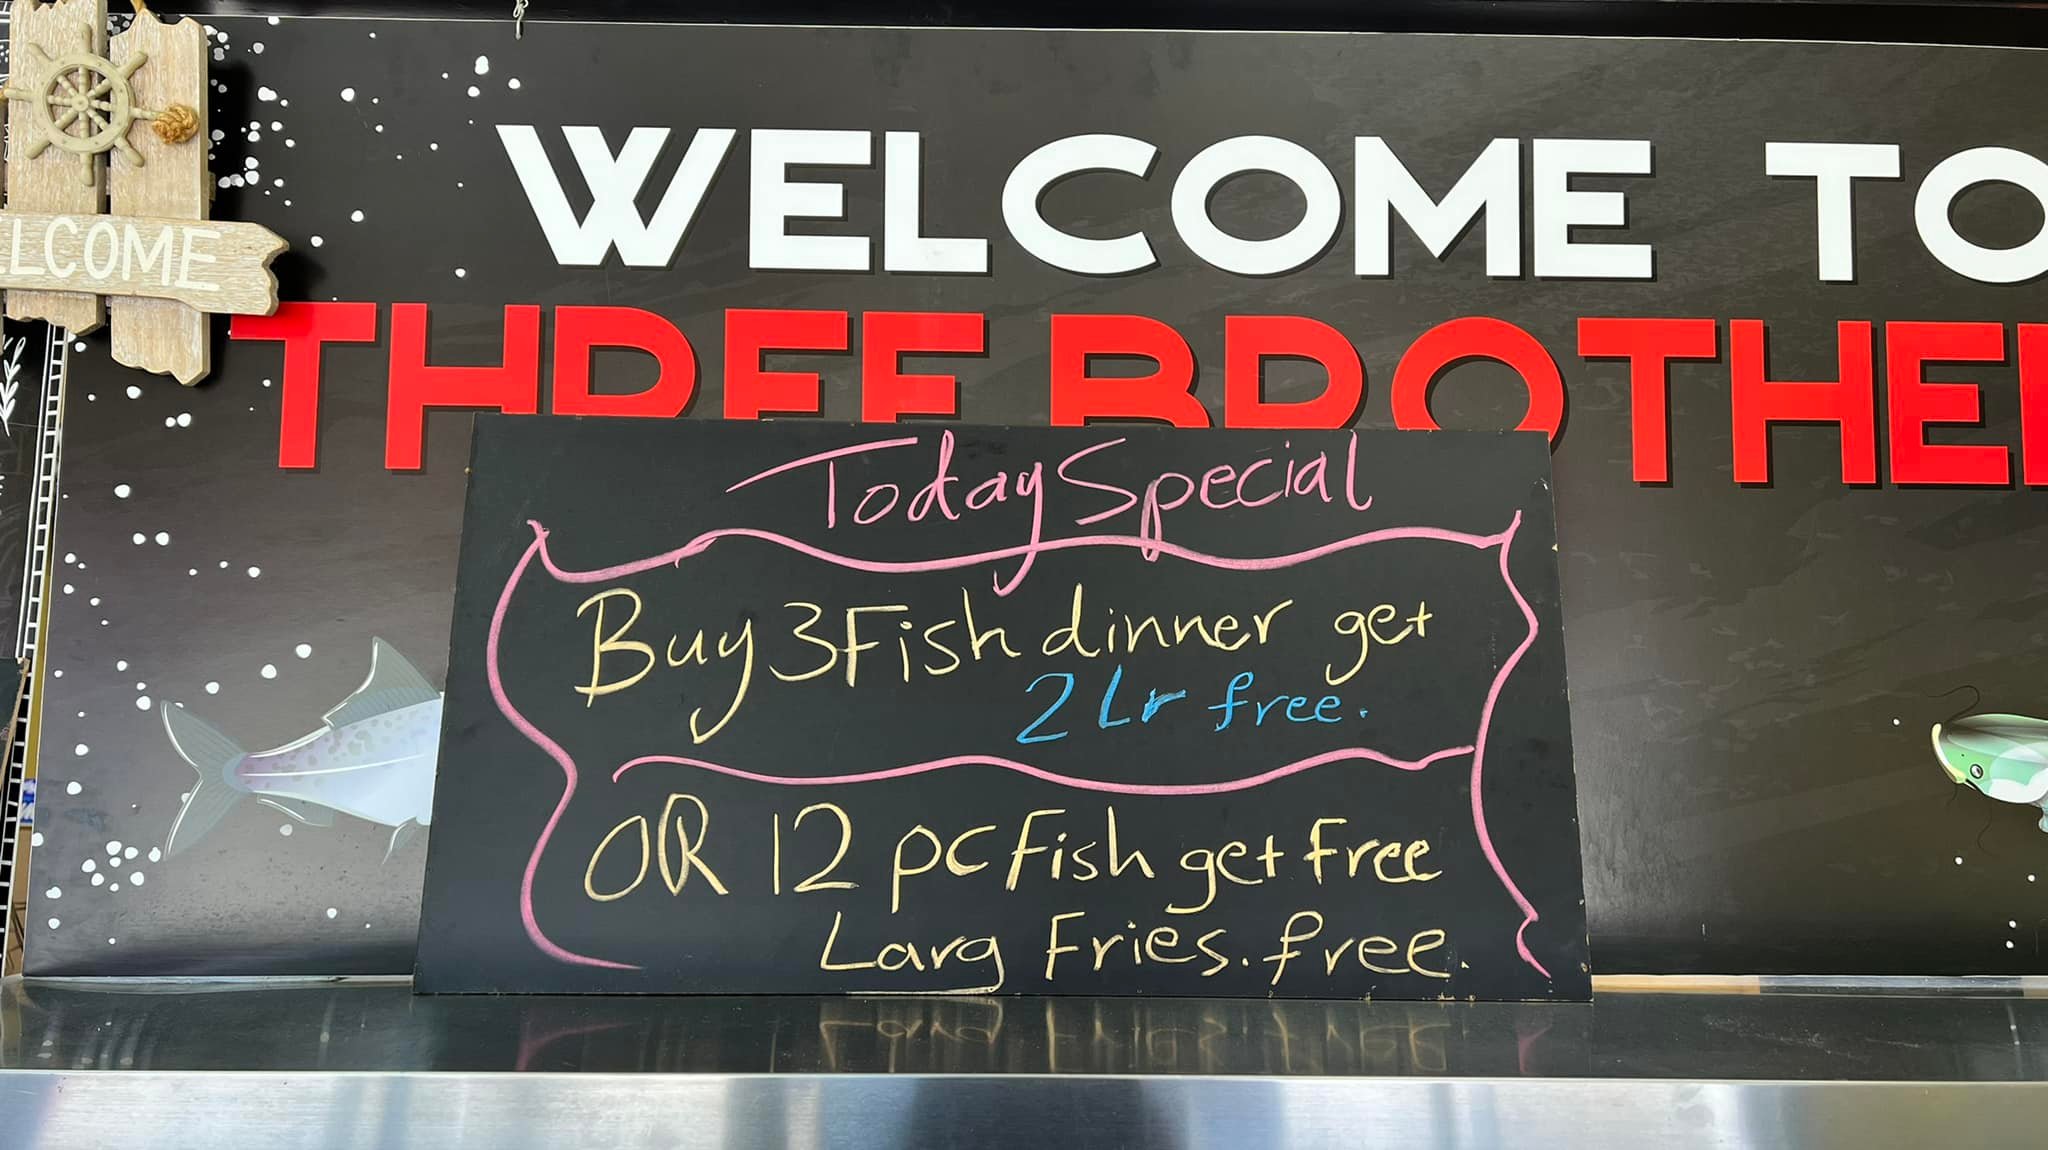 WELCOME TO
THREE BROTHE
ELCOME
Today Special
Buy 3 Fish dinner get
2 Lr free.
OR 12 pc Fish get Free
Larg Fries. free.